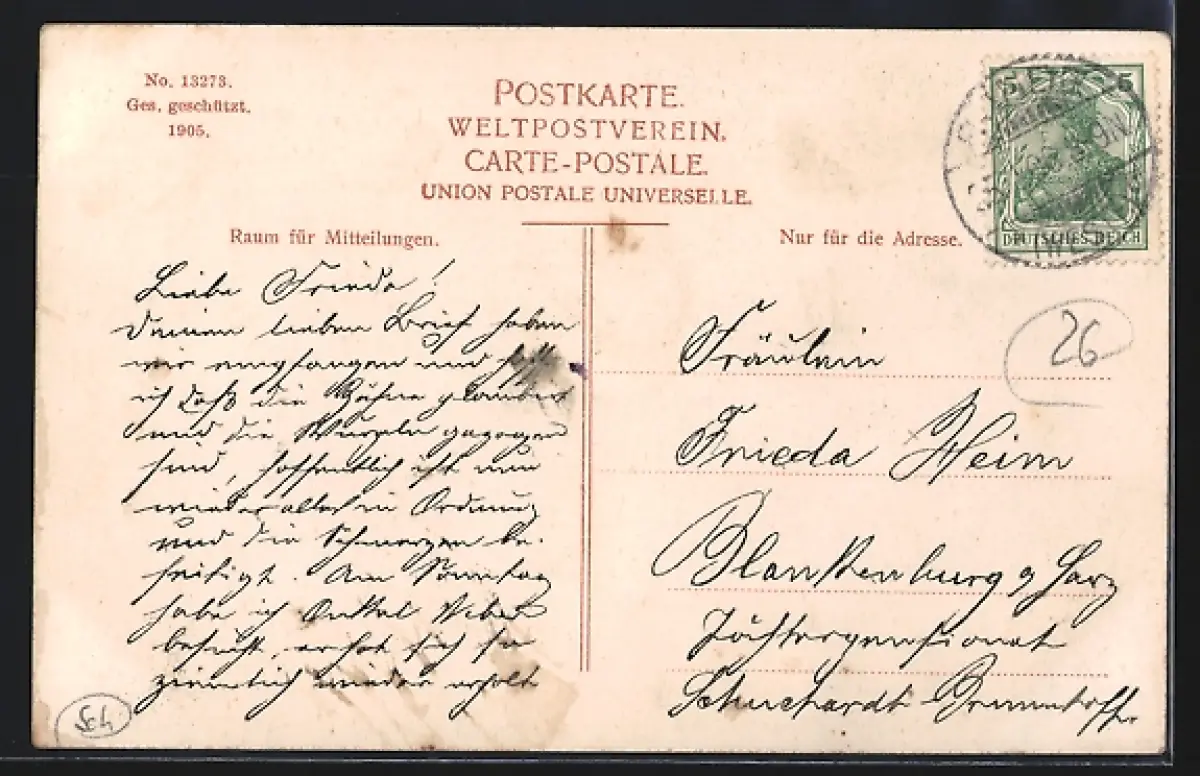 No. 13273.
Ges. geschützt.
1905.
POSTKARTE.
WELTPOSTVEREIN.
CARTE-POSTALE.
UNION POSTALE UNIVERSELLE.
Raum für Mitteilungen.
Nur für die Adresse.
5 5
DEUTSCHES REICH
Liebe Frieda!
Deinen lieben Brief haben
wir empfangen und
ich daß die Zähne
und die Wurzeln gezogen
sind, hoffentlich ist nun
wieder alles in Ordnung
und die Schmerzen be-
seitigt. Am Sonntag
habe ich Onkel Weber
besucht, er hat sich so
ziemlich wieder erholt
26
Fräulein
Frieda Heim
Blankenburg a Harz
Töchterpensionat
Schuchardt